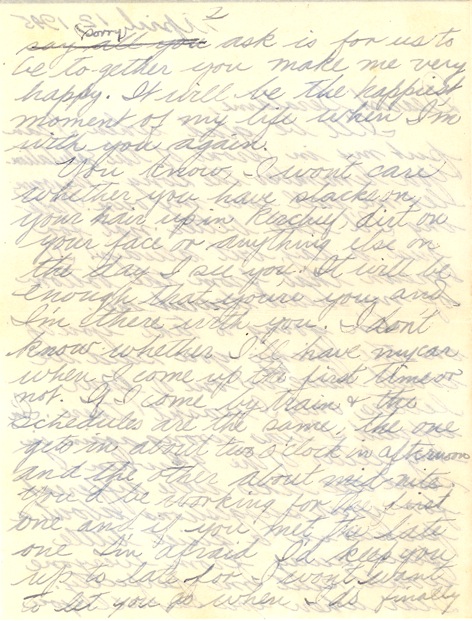 2
sorry
say all you ask is for us to
be to-gether you make me very
happy. It will be the happiest
moment of my life when I'm
with you again.
You know, I won't care
whether you have slacks on,
your hair up in kerchief, dirt on
your face or anything else on
the day I see you. It will be
enough that you're you and
I'm there with you. I don't
know whether I'll have my car
when I come up the first time or
not. If I come by train & the
schedules are the same, the one
gets in about two o'clock in afternoon
and the other about mid-nite.
You'd be working for the first
one and if you met the late
one I'm afraid I'd keep you
up to late for I won't want
to let you go when I do finally